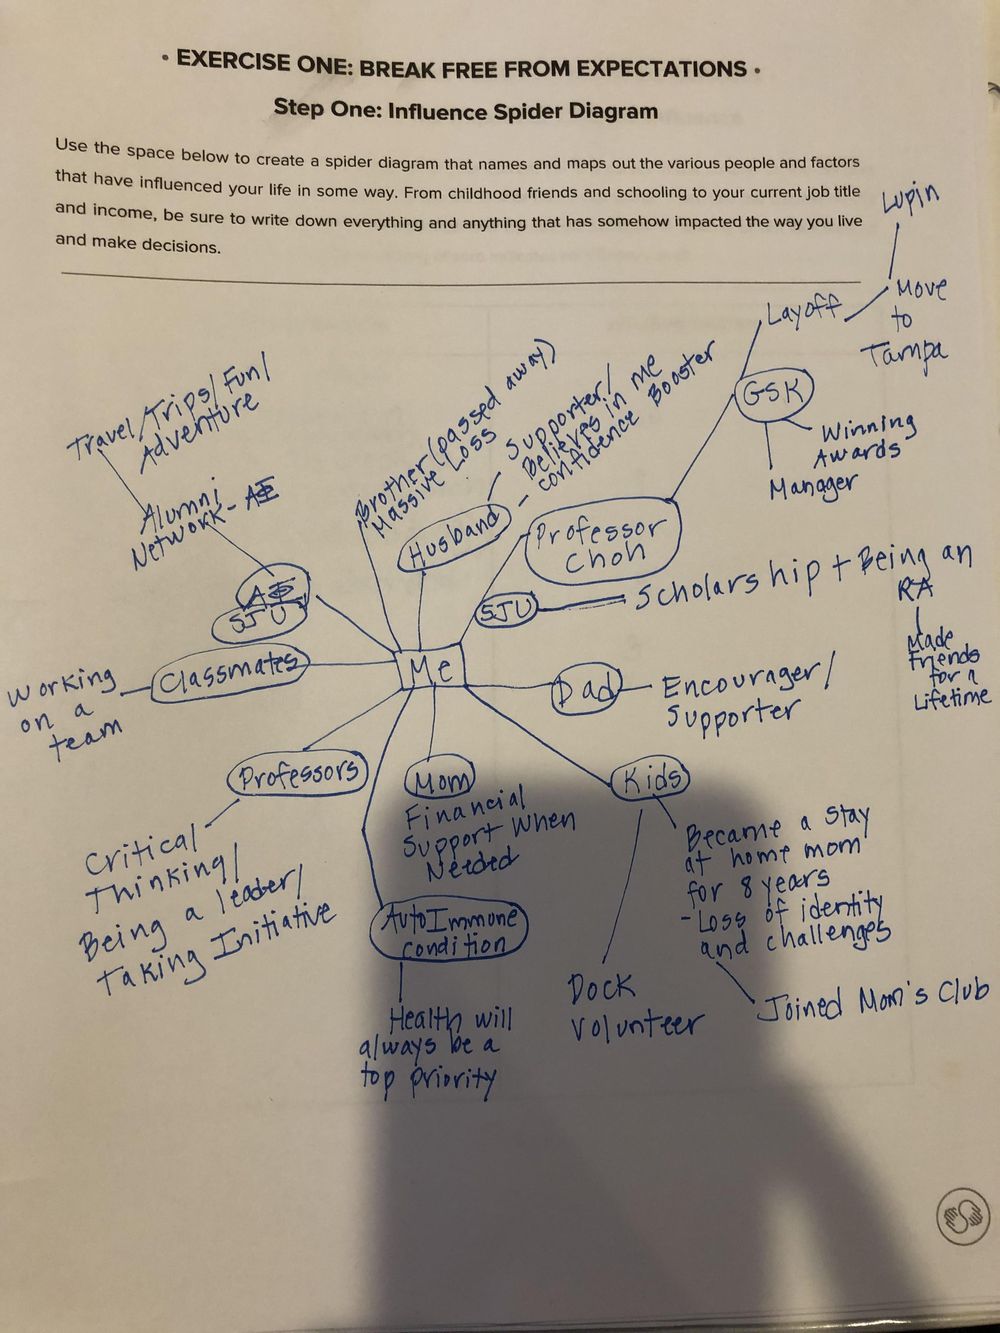 • EXERCISE ONE: BREAK FREE FROM EXPECTATIONS •
Step One: Influence Spider Diagram
Use the space below to create a spider diagram that names and maps out the various people and factors
that have influenced your life in some way. From childhood friends and schooling to your current job title
and income, be sure to write down everything and anything that has somehow impacted the way you live
and make decisions.
Lupin
Move
to
Tampa
Layoff
GSK
Winning
Awards
Manager
Travel/Trips/Fun/
Adventure
Alumni
Network - AΦ
AΦ
SJU
Brother (passed away)
Massive Loss
Husband
Supporter/
Believes in me
- confidence Booster
Professor
Choh
SJU
Scholarship + Being an
RA
Made
Friends
for a
Lifetime
Me
Classmates
Working
on a
team
Dad
Encourager/
Supporter
Professors
Critical
Thinking/
Being a leader/
Taking Initiative
Mom
Financial
Support When
Needed
Kids
Became a stay
at home mom
for 8 years
- Loss of identity
and challenges
Joined Mom's Club
Dock
Volunteer
AutoImmune
condition
Health will
always be a
top priority